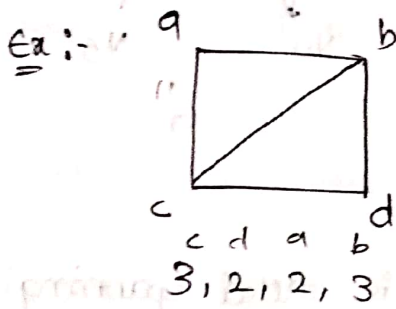 Ex :-
a b
c d
c d a b
3, 2, 2, 3